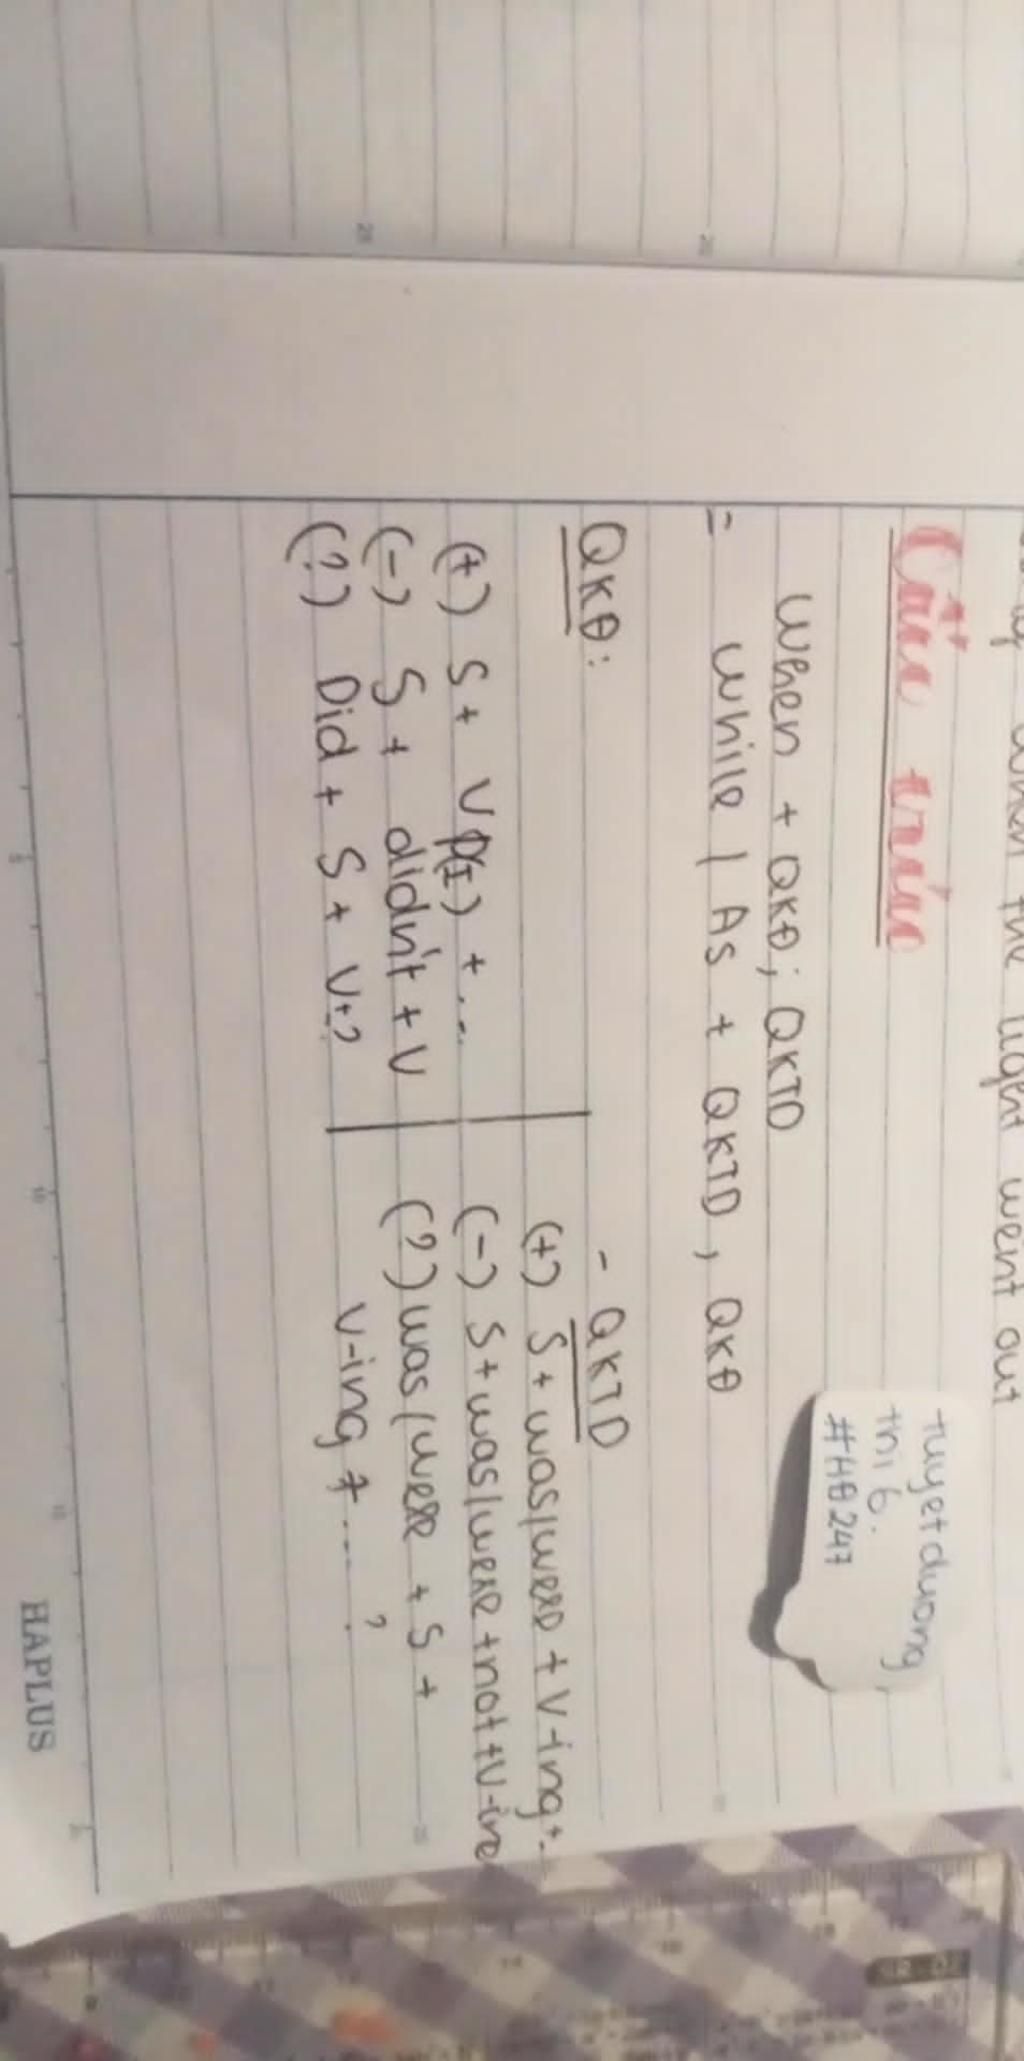 when the light went out
Cấu trúc
tuyetduong
thi 6.
#HĐ247
When + QKĐ; QKTD
= While / As + QKTD, QKĐ
QKĐ:
(+) S + V p(I) + ...
(-) S + didn't + V
(?) Did + S + V+?
- QKTD
(+) S + was/were + V-ing+..
(-) S + was/were + not + V-ing
(?) was/were + S +
V-ing + .... ?
HAPLUS